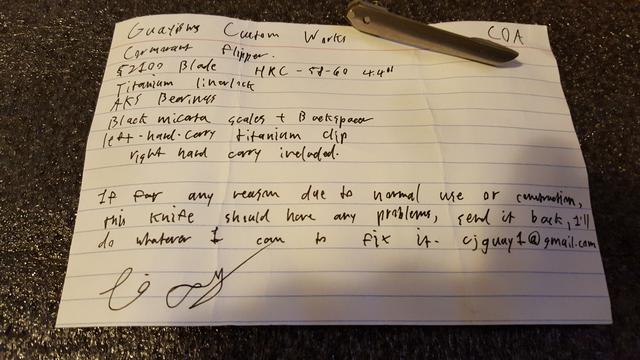 Guaytiws Custom Works COA
Cormorant flipper.
52100 Blade HRC - 58-60 4.4"
Titanium linerlock
AKS Bearings
Black micarta scales + Backspacer
left-hand-carry titanium clip
right hand carry included.
If for any reason due to normal use or construction,
this knife should have any problems, send it back, I'll
do whatever I can to fix it. cjguay1@gmail.com